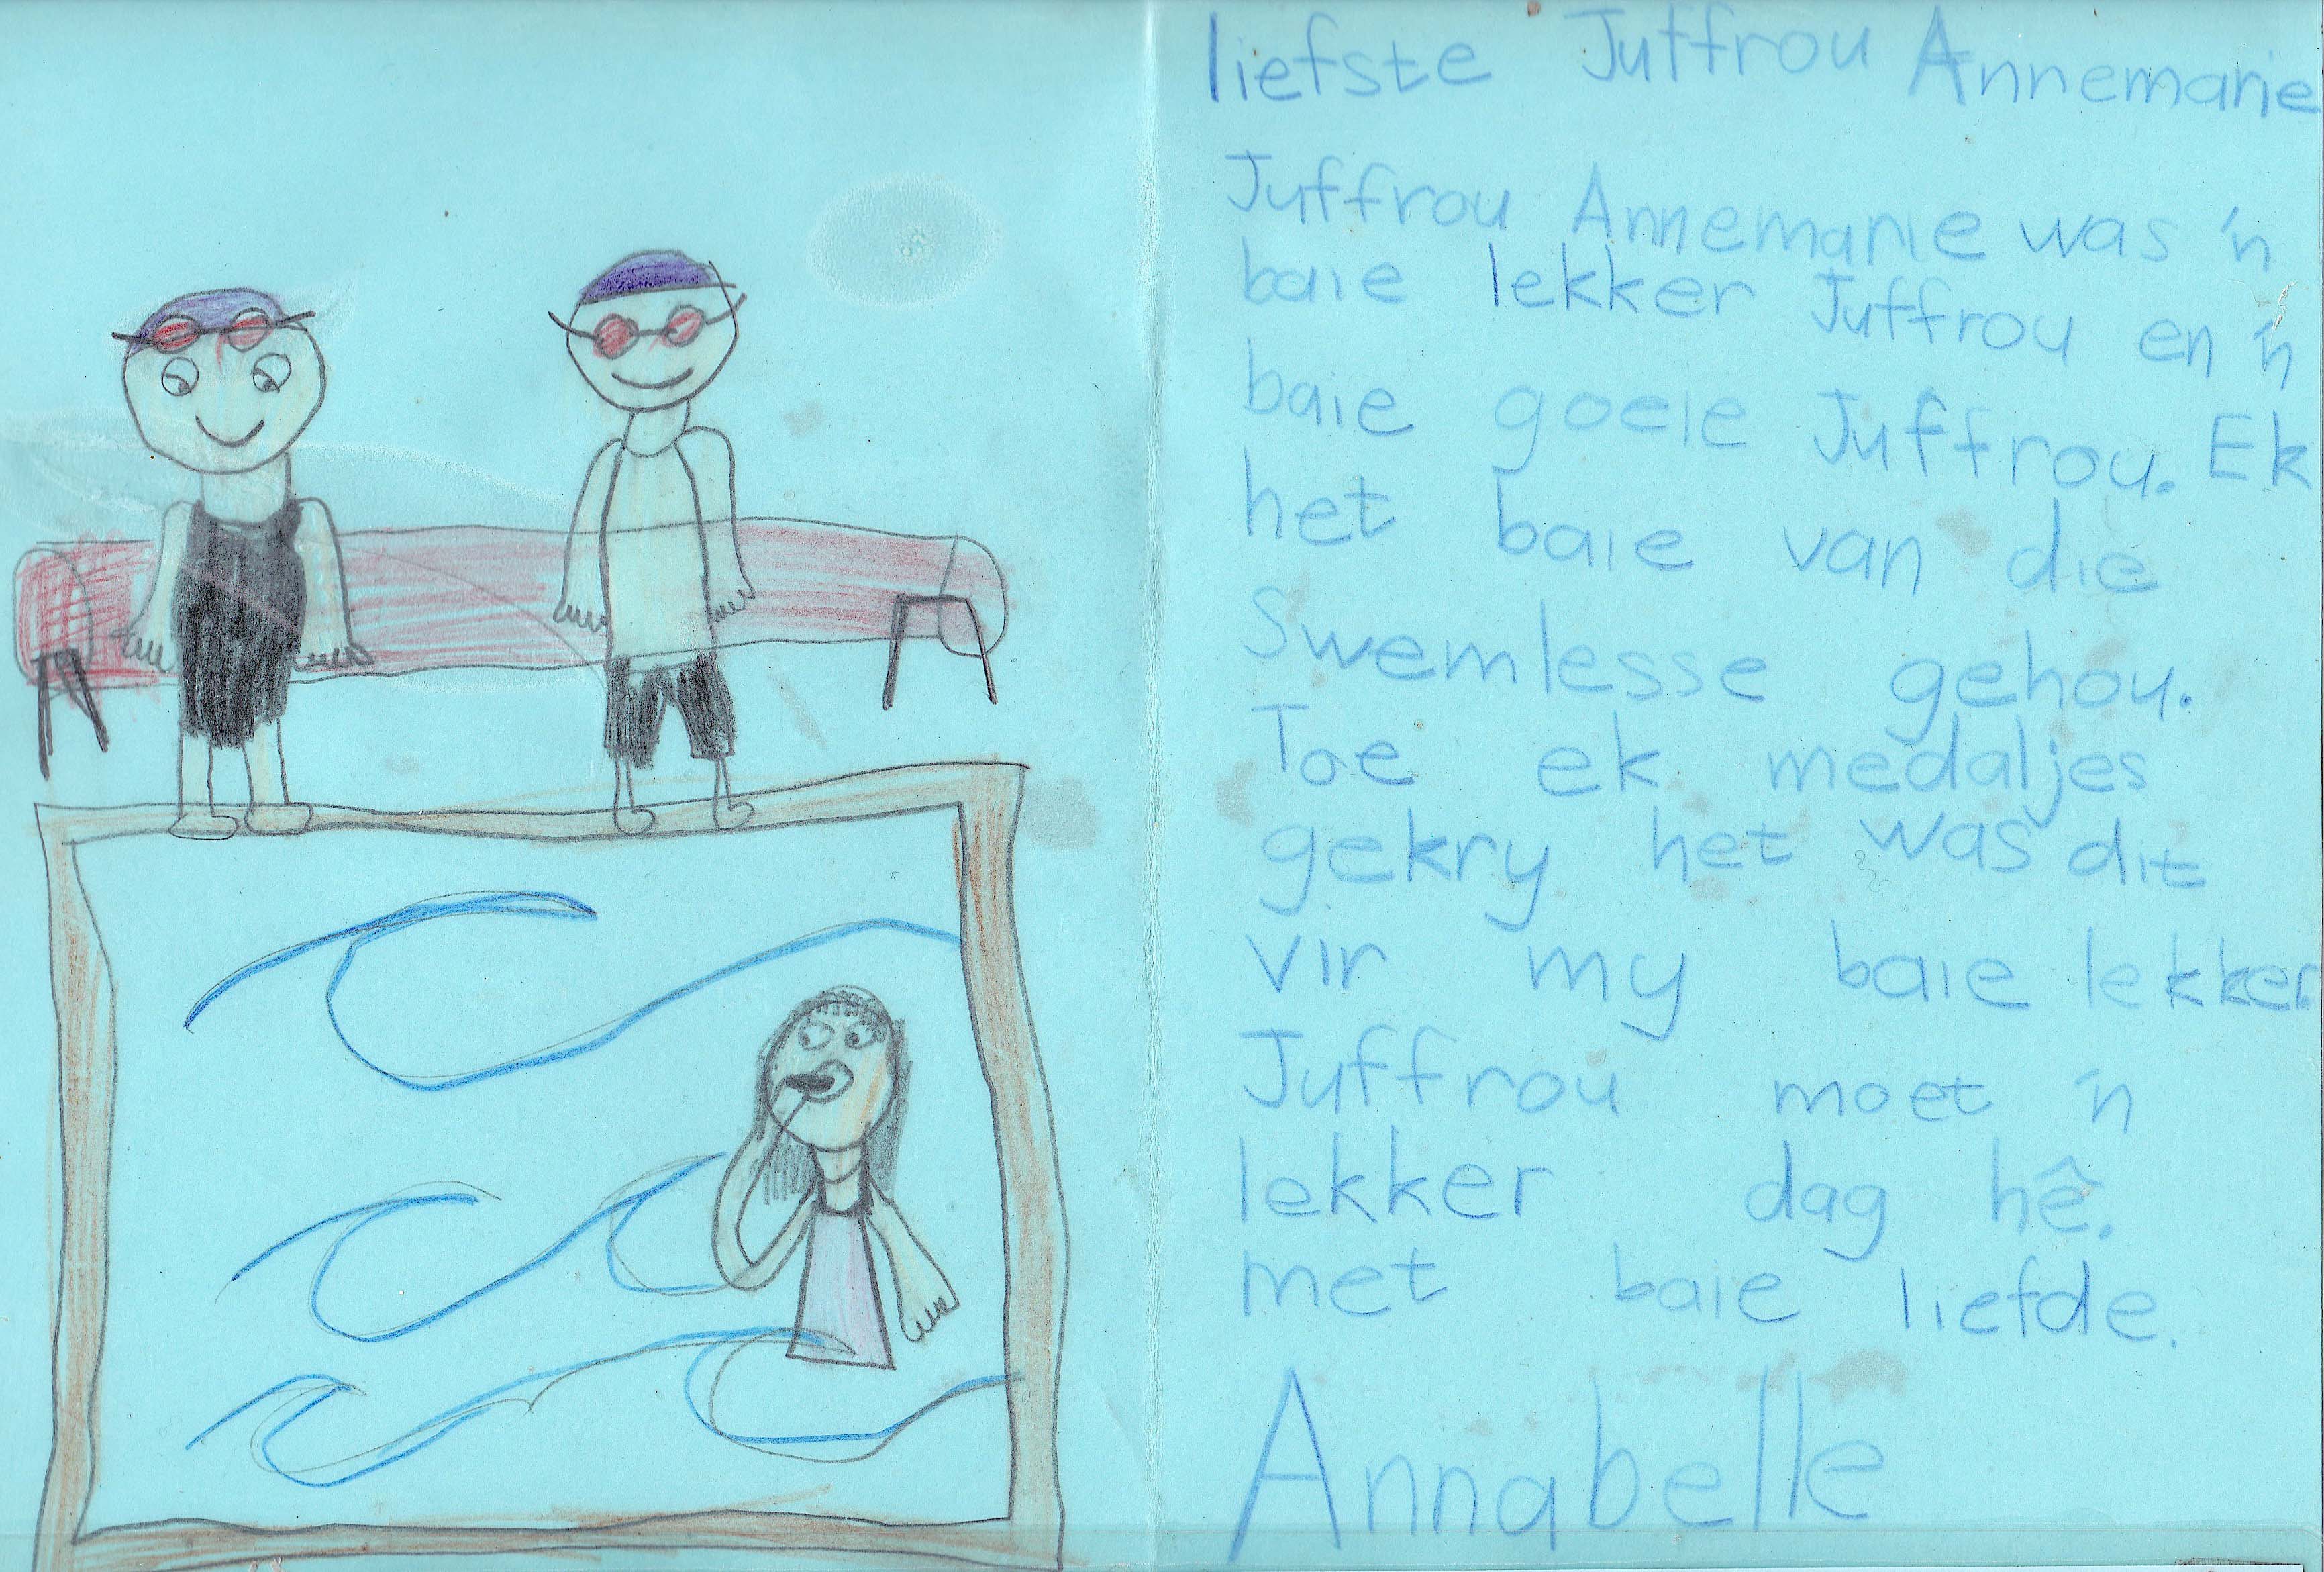 liefste Juffrou Annemarie
Juffrou Annemarie was 'n
baie lekker Juffrou en 'n
baie goeie Juffrou. Ek
het baie van die
Swemlesse gehou.
Toe ek medaljes
gekry het was dit
vir my baie lekker.
Juffrou moet 'n
lekker dag hê.
met baie liefde.
Annabelle